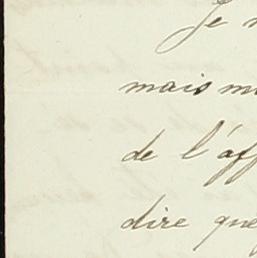 Je
mais
de l'aff
dire que